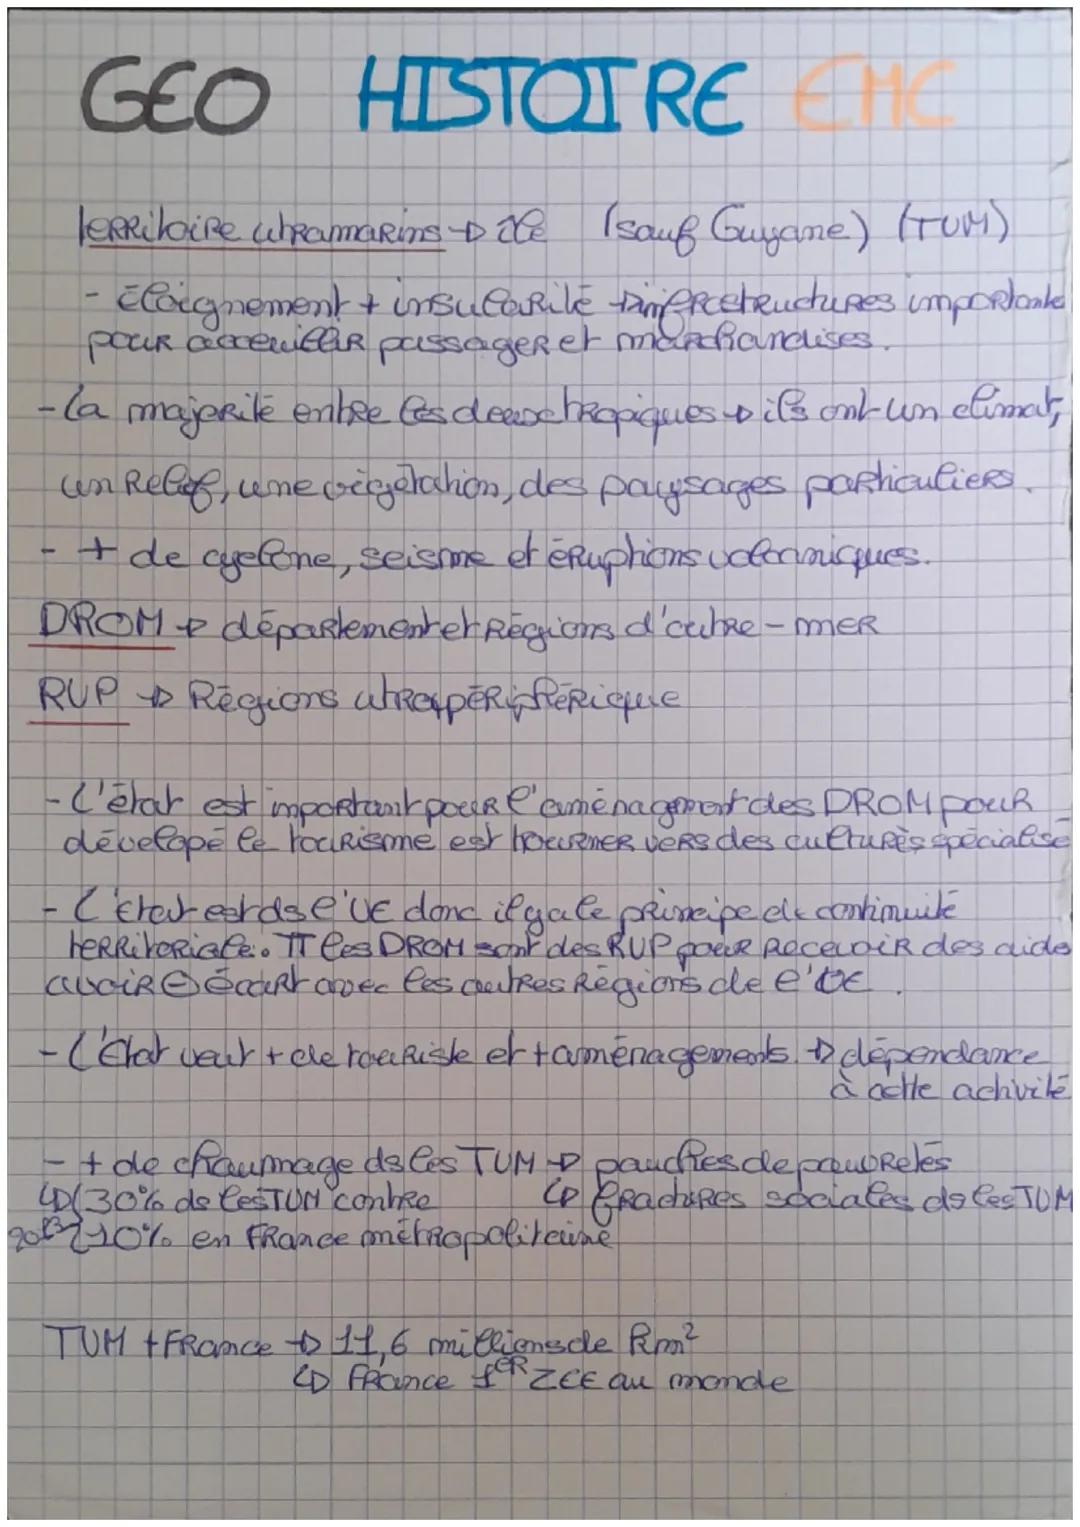 GEO HISTOIRE EMC
Territoire utramarins → île (sauf Guyane) (TUM)
- Éloignement + insularité → infrcstructures importante
pour acceuillir passager et marchandises.
- La majorité entre les deux tropiques → ils ont un climat,
un relief, une végétation, des paysages particuliers.
- + de cyclone, seisme et éruptions volcaniques.
DROM → département et Régions d'outre-mer
RUP → Régions utrapériphérique
- L'état est important pour l'aménagement des DROM pour
développé le tourisme est tourner vers des cultures spécialisé
- L'Etat est ds l'UE donc il y a le principe de continuité
territoriale. TT les DROM sont des RUP pour recevoir des aide
avoir ⊖ écart avec les autres Régions de l'UE.
- L'Etat veut + de touriste et + aménagements → dépendance
à cette activité
- + de chaumage ds les TUM → pauches de pauvretés
↳ (30% ds les TUM contre ↳ fractures sociales ds les TUM
2013 10% en France métropolitaine
TUM + France → 11,6 millions de km²
↳ France 1er ZEE au monde